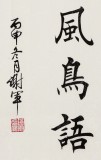 風鳥語
丙申冬月謝軍